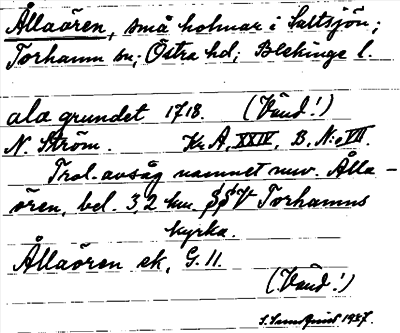 Ållaören, små holmar i Saltsjön;
Torhamn sn; Östra hd; Blekinge l.
ala grundet 1718. (Vänd!)
N. Ström. Kr. A, XXIV, B, N:o VII.
Trol. avsåg namnet nuv. Ålla-
ören, bel. 3,2 km. SSV Torhamns
kyrka.
Ållaören ek. G. 11.
(Vänd!)
1927.